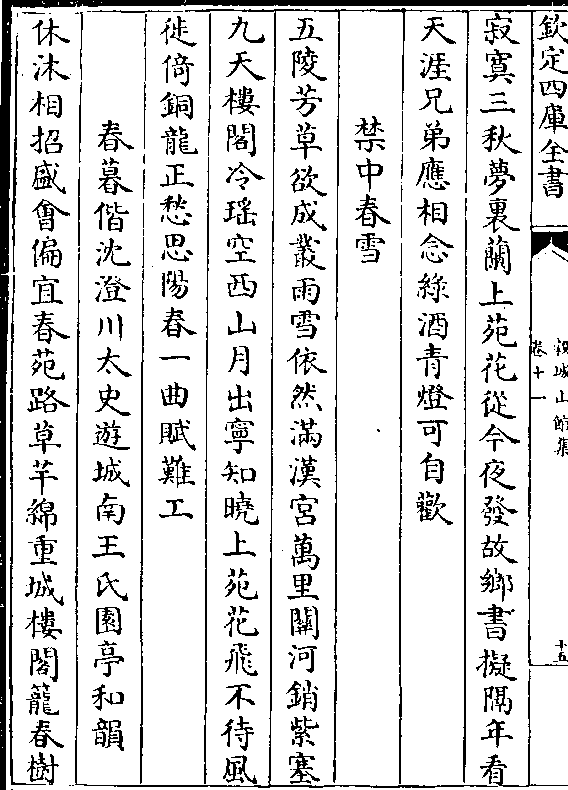 欽定四庫全書
穀城山館集
卷十一
十五
寂寞三秋夢裏蘭上苑花從今夜發故鄉書擬隔年看
天涯兄弟應相念綠酒青燈可自歡
禁中春雪
五陵芳草欲成叢雨雪依然滿漢宮萬里關河銷紫塞
九天樓閣冷瑤空西山月出寧知曉上苑花飛不待風
徙倚銅龍正愁思陽春一曲賦難工
春暮偕沈澄川太史遊城南王氏園亭和韻
休沐相招盛會偏宜春苑路草芊綿重城樓閣籠春樹